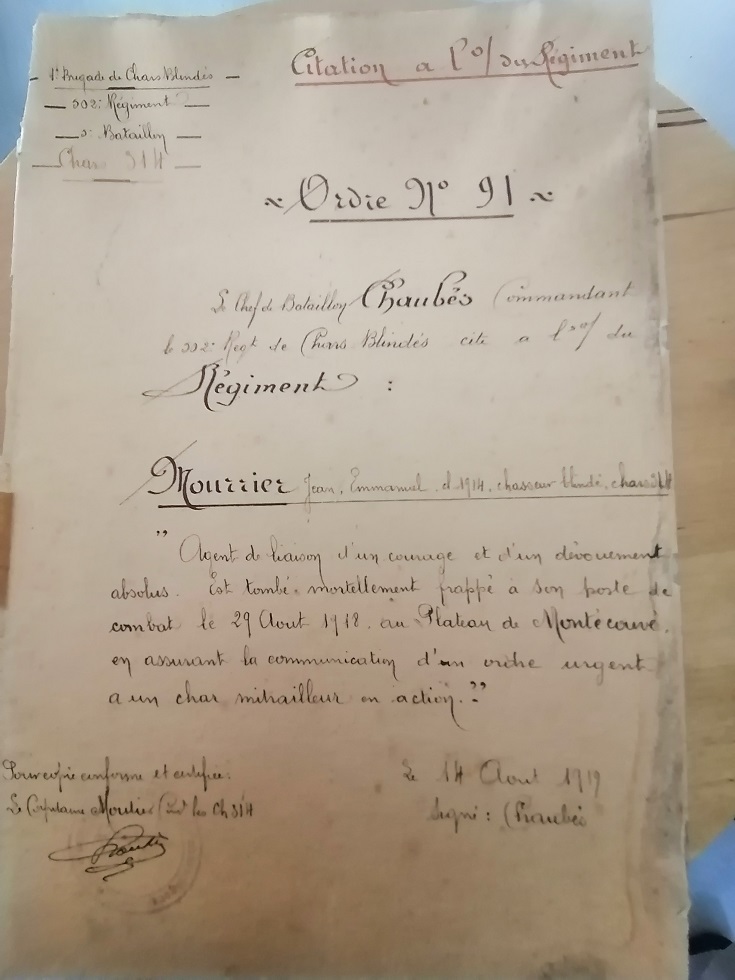 Citation a l'o/ du Régiment
1e Brigade de Chars Blindés
502e Régiment
Bataillon
Char 314
~ Ordre No 91 ~
Le Chef de Bataillon Chaubés Commandant
le 502e Regt de Chars Blindés cite a l'o/ du
Régiment :
Mourrier Jean, Emmanuel, cl 1914, chasseur blindé, chars 314
" Agent de liaison d'un courage et d'un dévouement
absolus. Est tombé mortellement frappé à son poste de
combat le 29 Aout 1918. au Plateau de Montécouvé,
en assurant la communication d'un ordre urgent
a un char mitrailleur en action. "
Pour copie conforme et certifiée.
Le Capitaine Moulier Cdt les Ch 314
Le 14 Aout 1919
Signé : Chaubés